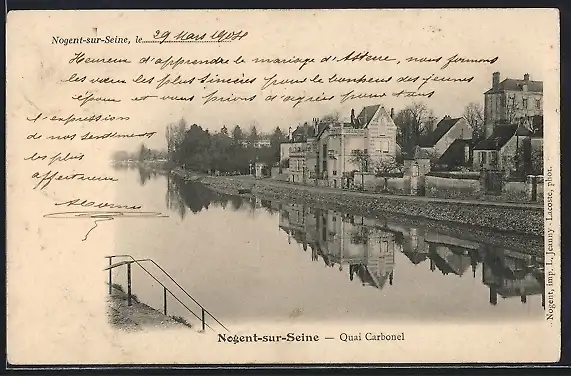 Nogent-sur-Seine, le 29 Mars 1904
Heureux d'apprendre le mariage d'            , nous formons
les vœux les plus sincères pour le bonheur des jeunes
époux et vous prions d'agréer pour tant
l'expression
de nos sentiments
les plus
affectueux
Nogent-sur-Seine — Quai Carbonel
Nogent, imp. L. Jeanny-Lacoste, phot.